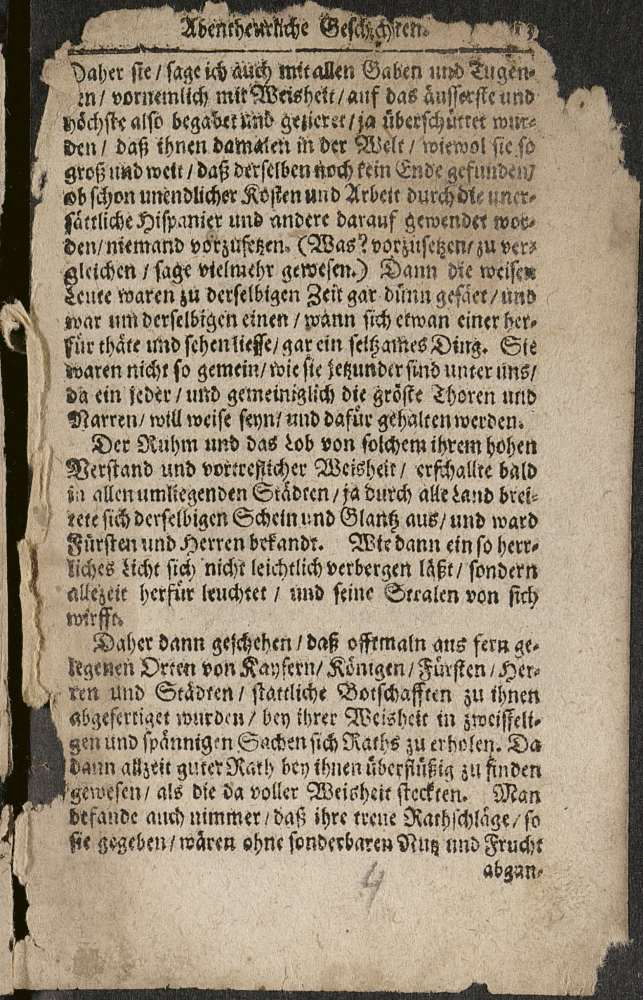 Abentheurliche Geschichten.
Daher sie / sage ich auch mit allen Gaben und Tugen-
en / vornemlich mit Weisheit / auf das äusserste und
höchste also begabet und gezieret / ja überschüttet wur-
den / daß ihnen damalen in der Welt / wiewol sie so
groß und weit / daß derselben noch kein Ende gefunden /
ob schon unendlicher Kosten und Arbeit durch die uner-
sättliche Hispanier und andere darauf gewendet wor-
den / niemand vorzusetzen. (Was? vorzusetzen / zu ver-
gleichen / sage vielmehr gewesen.) Dann die weisen
Leute waren zu derselbigen Zeit gar dünn gesäet / und
war um derselbigen einen / wann sich etwan einer her-
für thäte und sehen liesse / gar ein seltzames Ding. Sie
waren nicht so gemein / wie sie jetzunder sind unter uns /
da ein jeder / und gemeiniglich die gröste Thoren und
Narren / will weise seyn / und dafür gehalten werden.
Der Ruhm und das Lob von solchem ihrem hohen
Verstand und vortreflicher Weisheit / erschallte bald
in allen umliegenden Städten / ja durch alle Land brei-
tete sich derselbigen Schein und Glantz aus / und ward
Fürsten und Herren bekandt. Wie dann ein so herr-
liches Licht sich nicht leichtlich verbergen läßt / sondern
allezeit herfür leuchtet / und seine Stralen von sich
wirfft.
Daher dann geschehen / daß offtmaln aus fern ge-
legenen Orten von Kaysern / Königen / Fürsten / Her-
ren und Städten / stattliche Botschafften zu ihnen
abgefertiget wurden / bey ihrer Weisheit in zweiffeli-
gen und spännigen Sachen sich Raths zu erholen. Da
dann allzeit guter Rath bey ihnen überflüßig zu finden
gewesen / als die da voller Weisheit steckten. Man
befande auch nimmer / daß ihre treue Rathschläge / so
sie gegeben / wären ohne sonderbaren Nutz und Frucht
abgan-
4